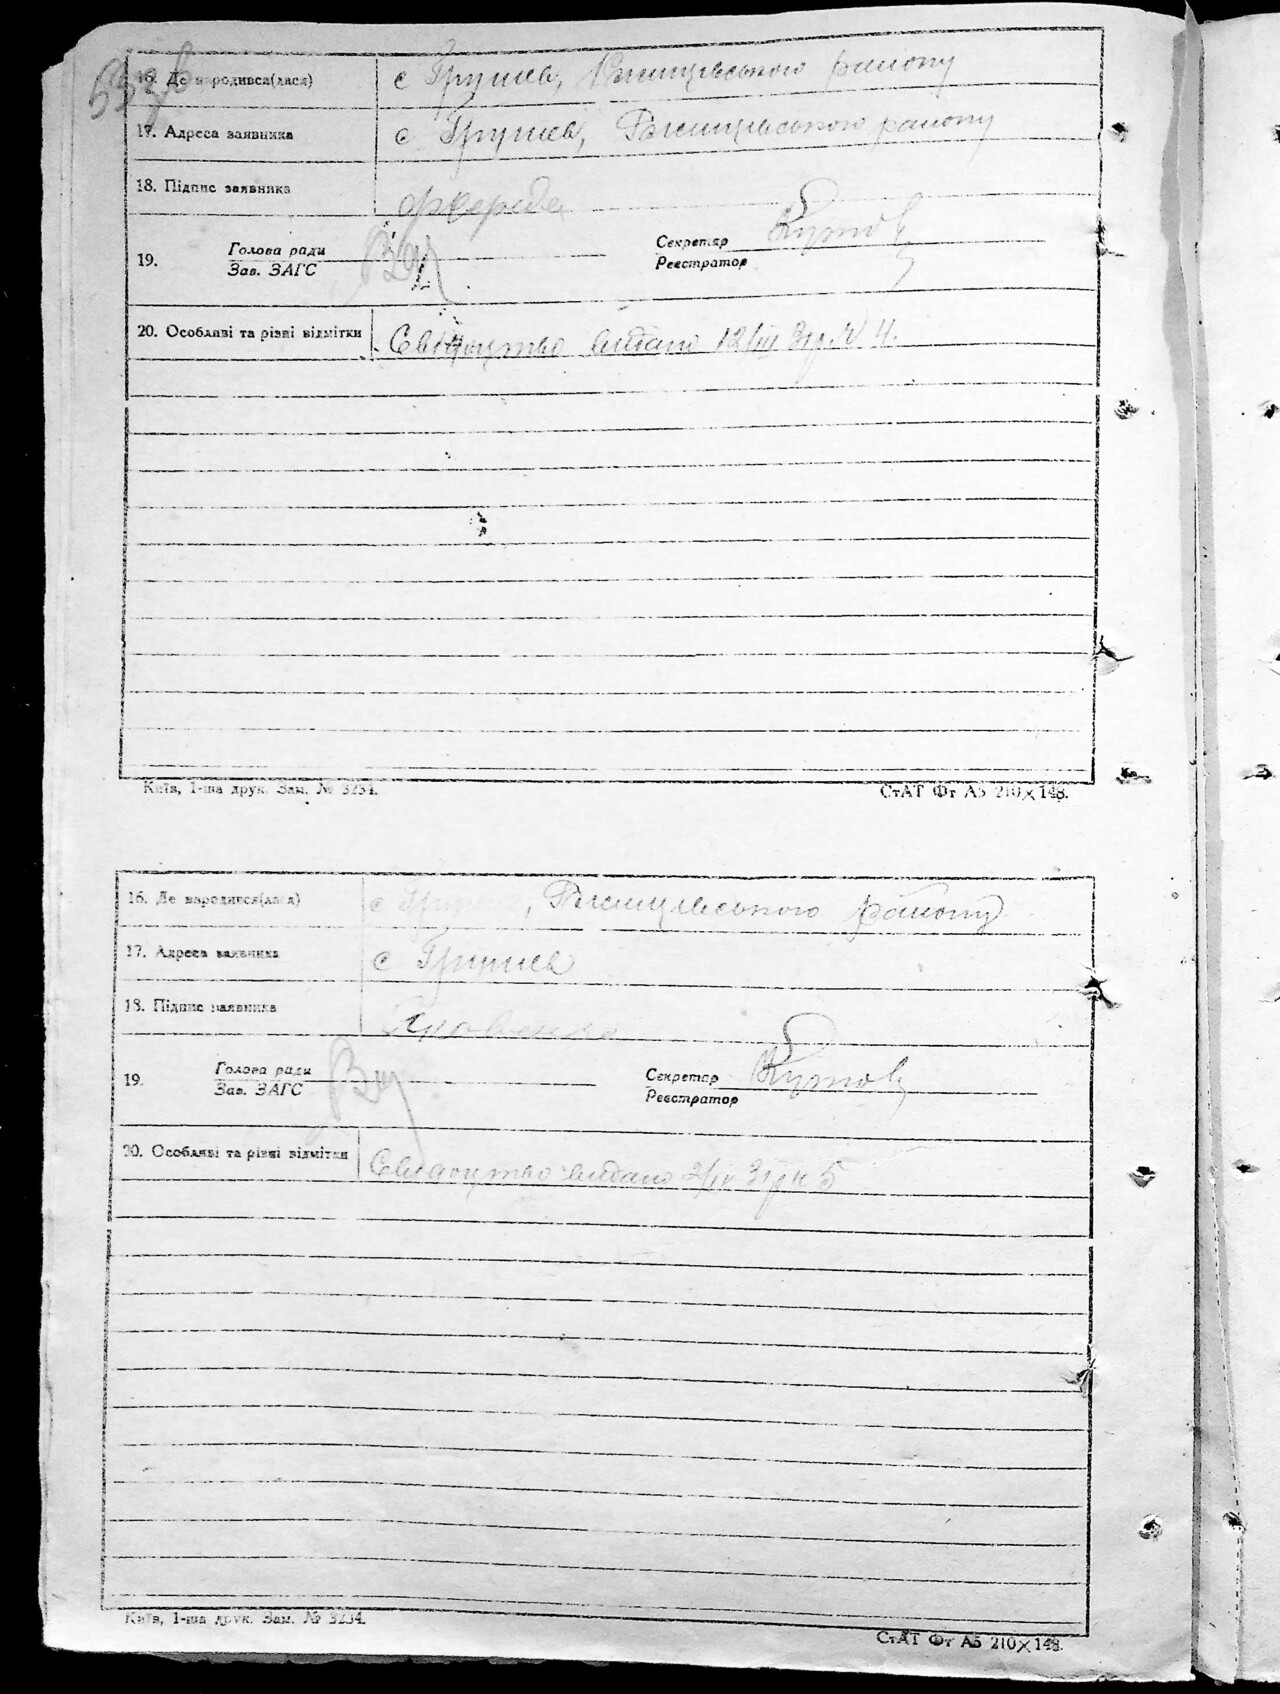 53 зв
16. Де народився(лася) с Грушев, Ржищівського району
17. Адреса заявника с Грушев, Ржищівського району
18. Підпис заявника
19. Голова ради
Зав. ЗАГС
Секретар
Реєстратор
20. Особливі та різні відмітки Свідоцтво видано 12/III 31 р. № 4.
Київ, 1-ша друк. Зам. № 3234.
СтАТ Фт А5 210×148.
16. Де народився(лася) с Грушев, Ржищівського району
17. Адреса заявника с Грушев
18. Підпис заявника Яковенко
19. Голова ради
Зав. ЗАГС
Секретар
Реєстратор
20. Особливі та різні відмітки Свідоцтво видано 2/IV 31 р № 5
Київ, 1-ша друк. Зам. № 3234.
СтАТ Фт А5 210×148.